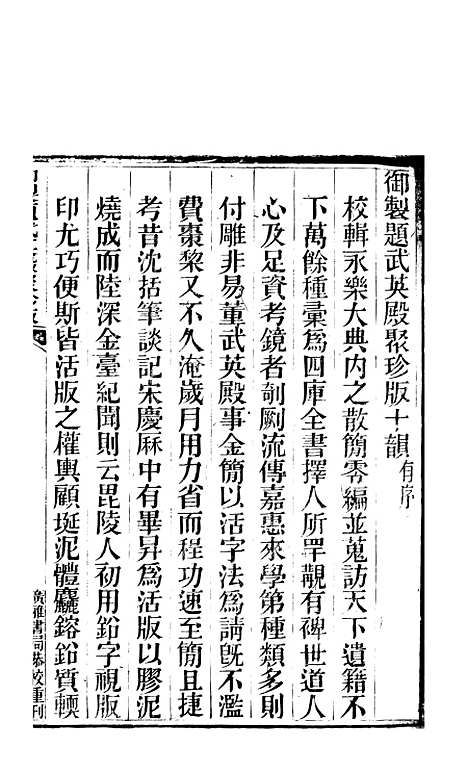 御製題武英殿聚珍版十韻有序
校輯永樂大典內之散簡零編並蒐訪天下遺籍不
下萬餘種彙爲四庫全書擇人所罕覯有裨世道人
心及足資考鏡者剞劂流傳嘉惠來學第種類多則
付雕非易董武英殿事金簡以活字法爲請旣不濫
費棗棃又不久淹歲月用力省而程功速至簡且捷
考昔沈括筆談記宋慶厤中有畢昇爲活版以膠泥
燒成而陸深金臺紀聞則云毘陵人初用鉛字視版
印尤巧便斯皆活版之權輿顧埏泥體麤鎔鉛質輭
廣雅書局恭校重刊